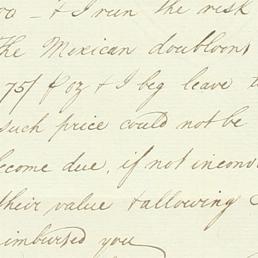 00 - & I run the risk
The Mexican doubloons
75/ ℔ oz & I beg leave t
such price could not be
become due, if not inconv
their value & allowing
imbursed you